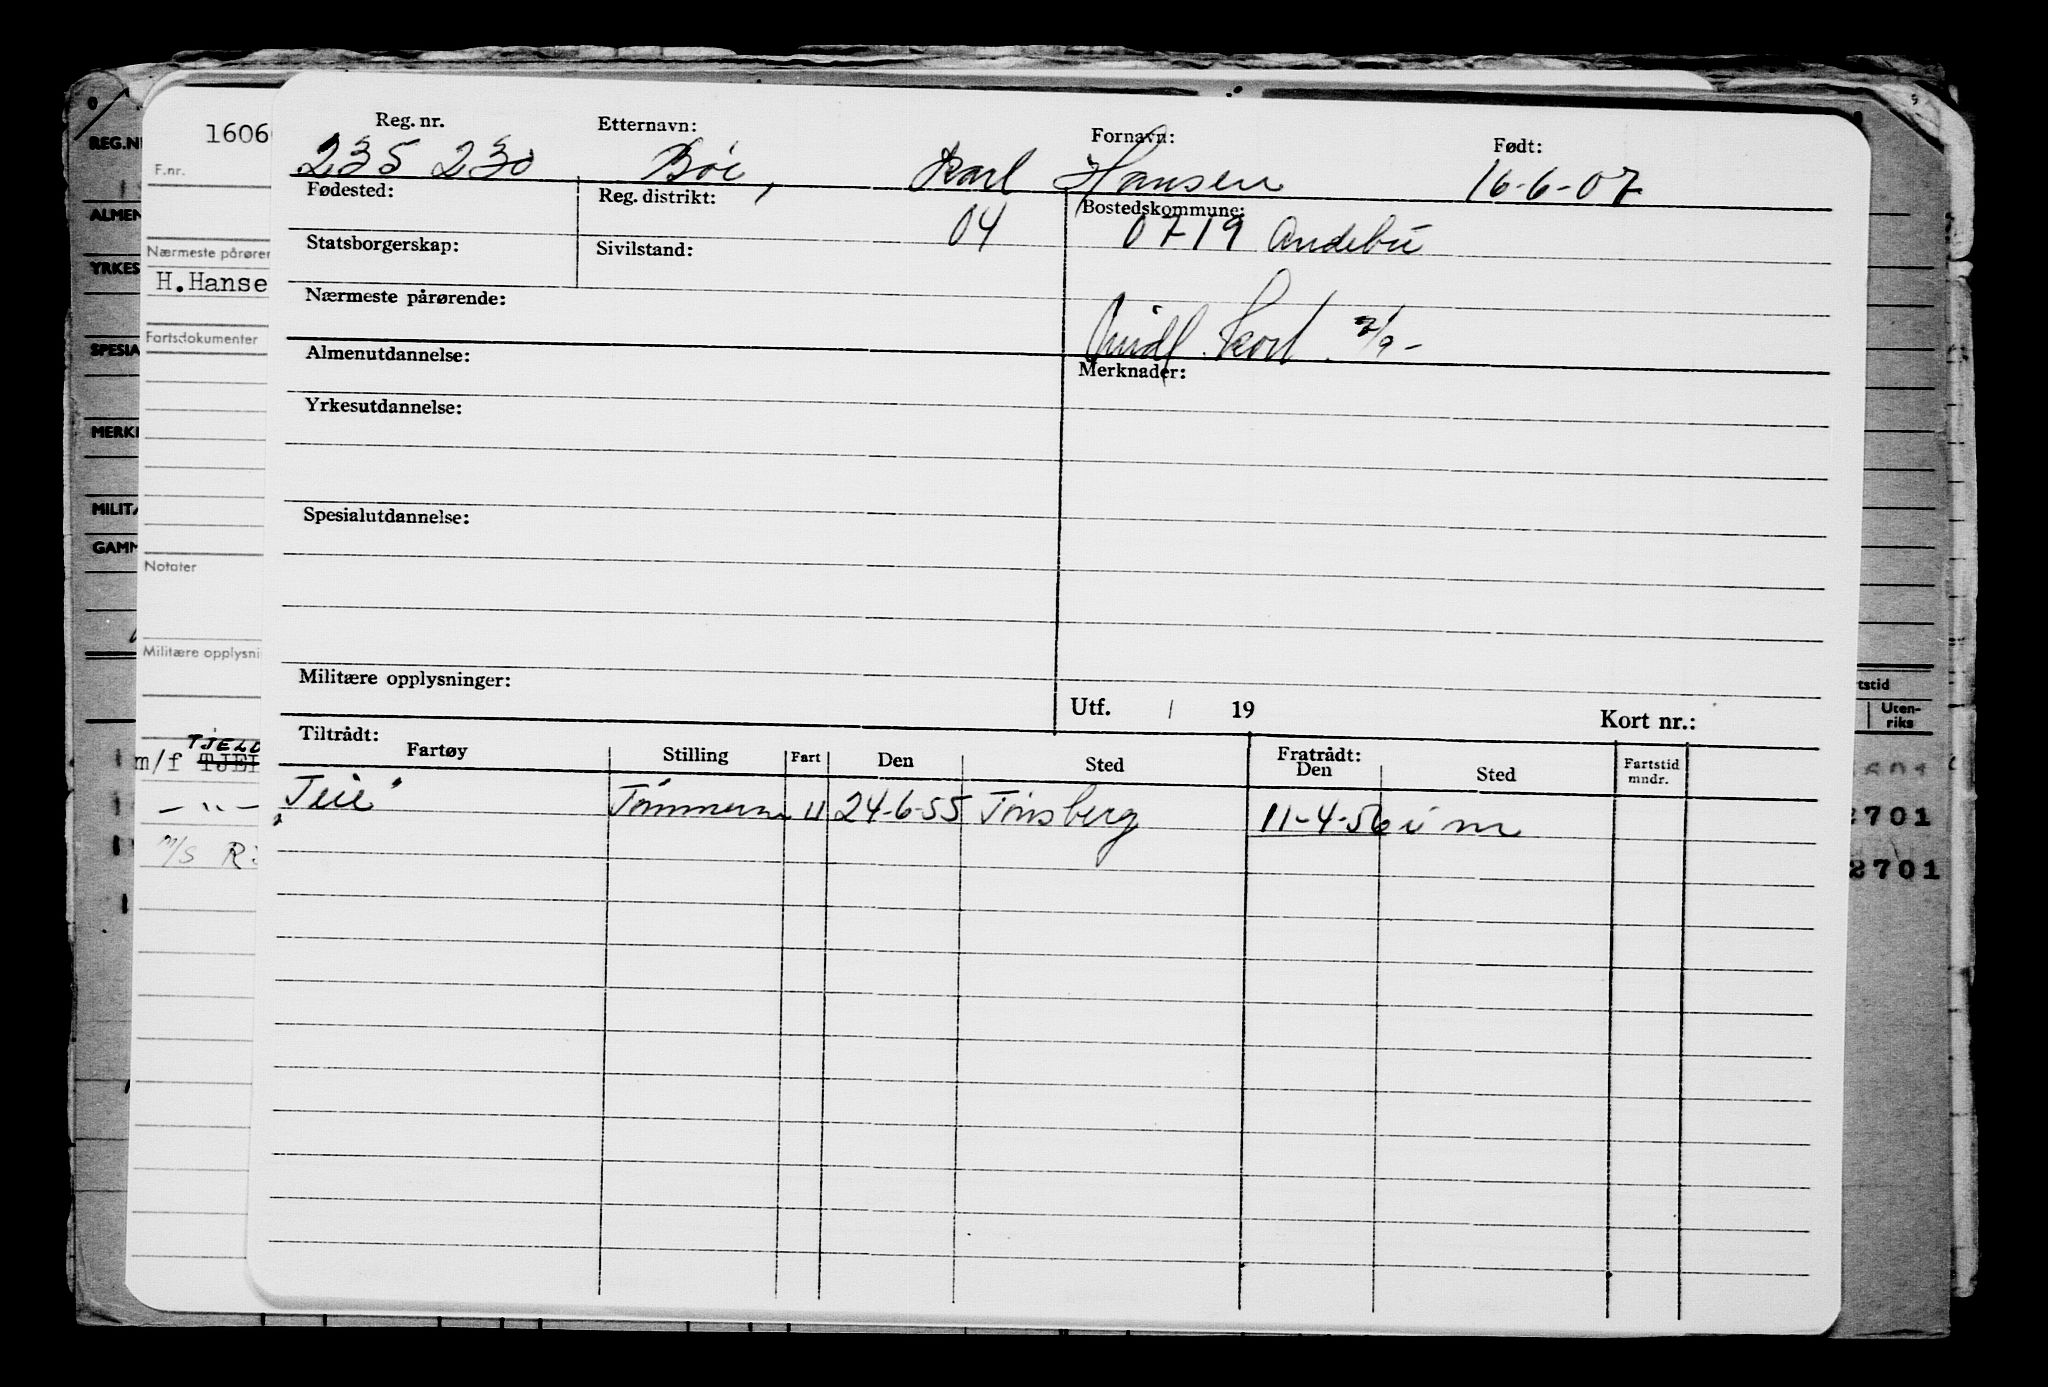 Reg. nr. Etternavn: Fornavn: Født:
235 230 Böe, Karl Hansen 16-6-07
Fødested: Reg. distrikt: 04 Bostedskommune: 0719 Andebu
Statsborgerskap: Sivilstand:
Nærmeste pårørende: Midl. kort
Almenutdannelse: Merknader:
Yrkesutdannelse:
Spesialutdannelse:
Militære opplysninger:
Utf. / 19 Kort nr.:
Tiltrådt: Fratrådt:
Fartøy Stilling Fart Den Sted Den Sted Fartstid mndr.
"Teie" Tømmerm. U 24-6-55 Tönsberg 11-4-56 i m
1606
F.nr.
Nærmeste pårøren
H.Hanse
Fartsdokumenter
Notater
Militære opplysni
TJELD
m/f TJEL
— " —
M/S R
REG.N
ALMEN
YRKES
SPESIA
MERK
MILIT
GAMM
rtstid
Uten-
riks
2701
2701